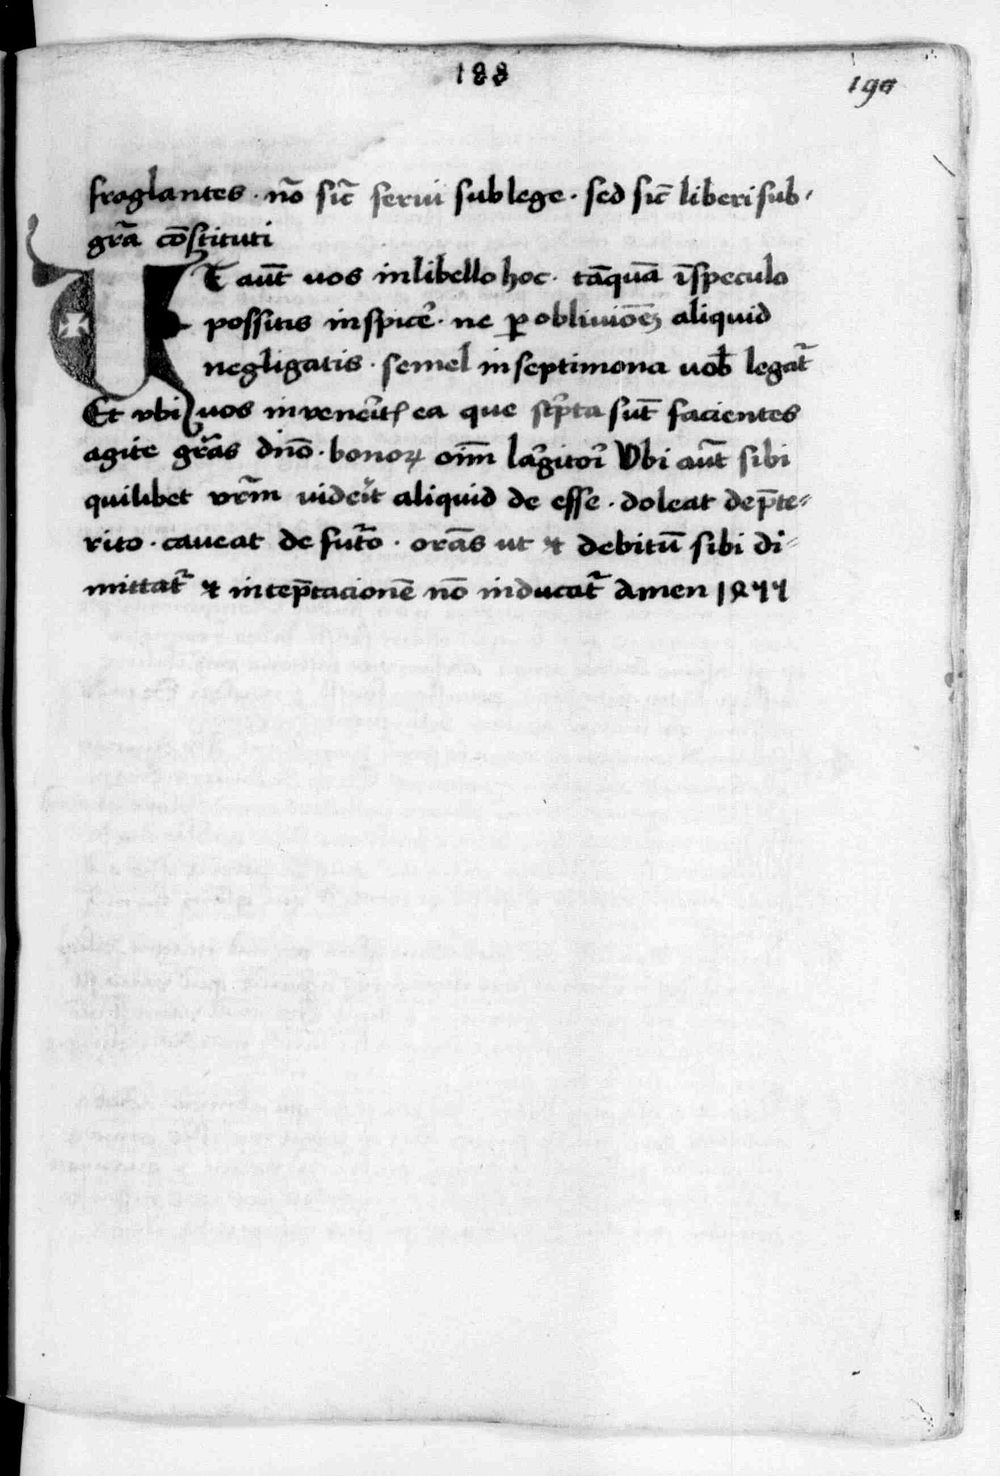 188
190
fraglantes · nō sic̄ serui sub lege · sed sic̄ liberi sub-
gr̄a cōstituti
UT aut̄ uos in libello hoc · tāquā ī speculo
possitis inspicer̄ · ne ꝑ obliuiōeꝫ aliquid
negligatis · semel in septimona uob̄ legat̄
Et vbi uos inveneritꝭ ea que sc̄pta sut̄ facientes
agite gr̄as dn̄o · bonoꝝ oīm lar̄gitori Vbi aut̄ sibi
quilibet vr̄m viderit aliquid de esse · doleat de p̄te-
rito · caveat de fut̄o · orās ut et debitū sibi di-
mittat̄ et in tep̄tacionē nō inducat̄ Amen 1477